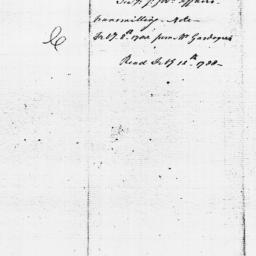 Sec.y f.r for.n Affairs
transmitting Note
July 8.th 1788 from Mr Gardoqui
Read July 12.th 1788